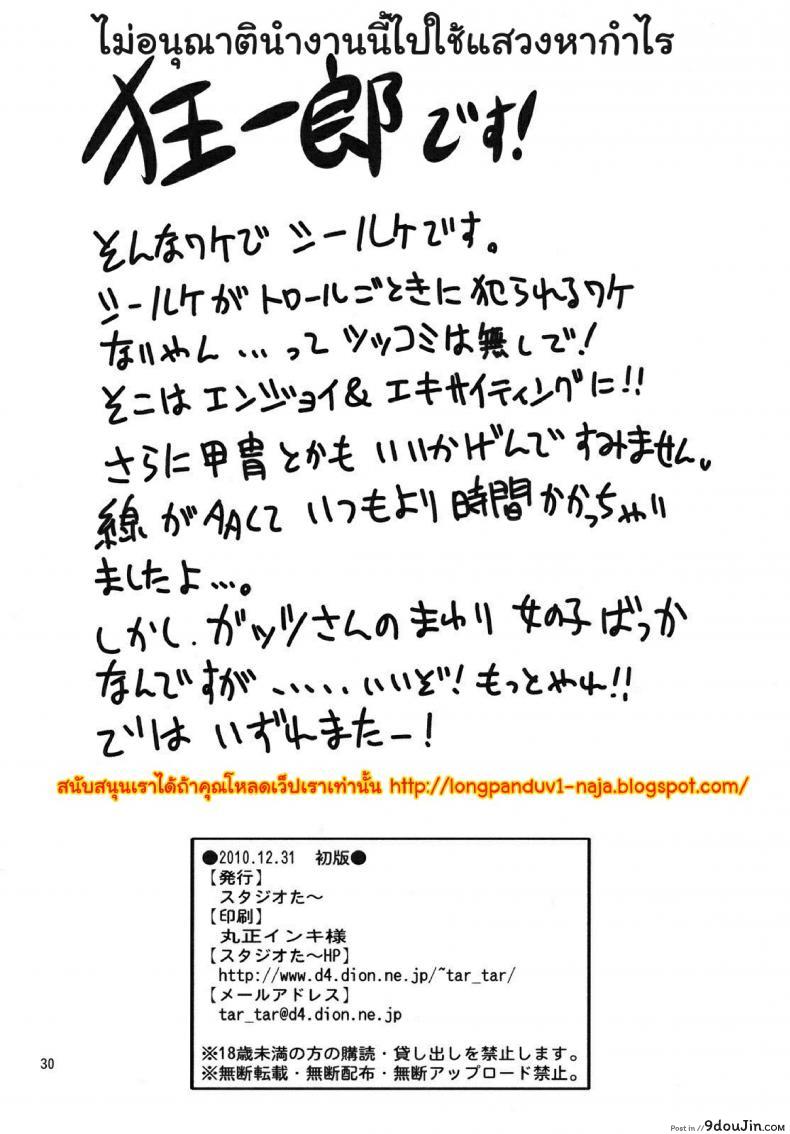 ไม่อนุณาตินำงานนี้ไปใช้แสวงหากำไร
狂一郎です!
そんなワケで シールケです。
シールケが トロールごときに 犯られるワケ
ないやん…って ツッコミは無しで!
そこは エンジョイ& エキサイティングに!!
さらに 甲冑とかも いいかげんで すみません。
線が AAくて いつもより 時間かかっちゃい
ましたよ…。
しかし、ガッツさんの まわり 女の子ばっか
なんですが ..... いいぞ! もっとやれ!!
では いずれまたー!
สนับสนุนเราได้ถ้าคุณโหลดเว็ปเราเท่านั้น http://longpanduv1-naja.blogspot.com/
●2010.12.31 初版●
【発行】
スタジオた~
【印刷】
丸正インキ様
【スタジオた~HP】
http://www.d4.dion.ne.jp/~tar_tar/
【メールアドレス】
tar_tar@d4.dion.ne.jp
※18歳未満の方の購読・貸し出しを禁止します。
※無断転載・無断配布・無断アップロード禁止。
30
Post in // 9douJin.com